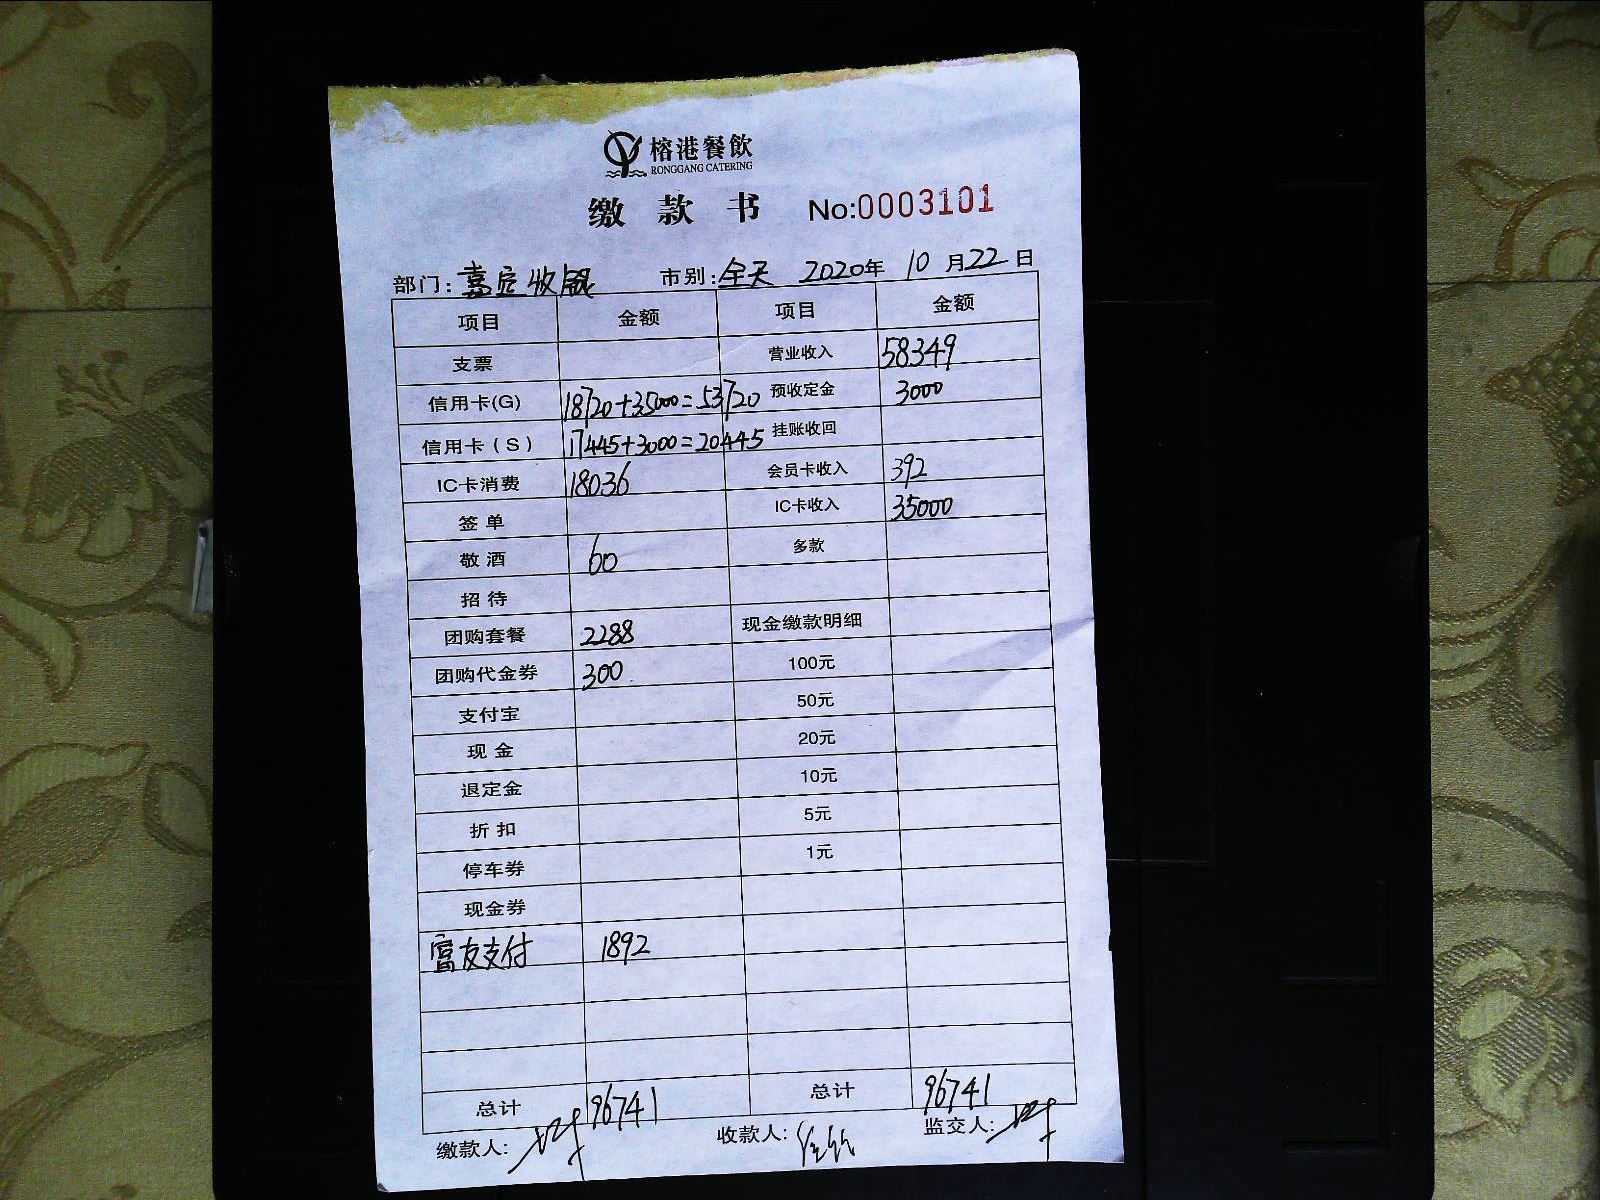 榕港餐飲
RONGGANG CATERING
缴款书 No:0003101
部门:嘉定收银 市别:全天 2020年10月22日
项目 金额 项目 金额
支票 营业收入 58349
信用卡(G) 18720+35000=53720 预收定金 3000
信用卡(S) 17445+3000=20445 挂账收回
IC卡消费 18036 会员卡收入 392
签单 IC卡收入 35000
敬酒 60 多款
招待
团购套餐 2288 现金缴款明细
团购代金券 300 100元
支付宝 50元
现金 20元
退定金 10元
折扣 5元
停车券 1元
现金券
富友支付 1892
总计 96741 总计 96741
缴款人: 收款人: 监交人: